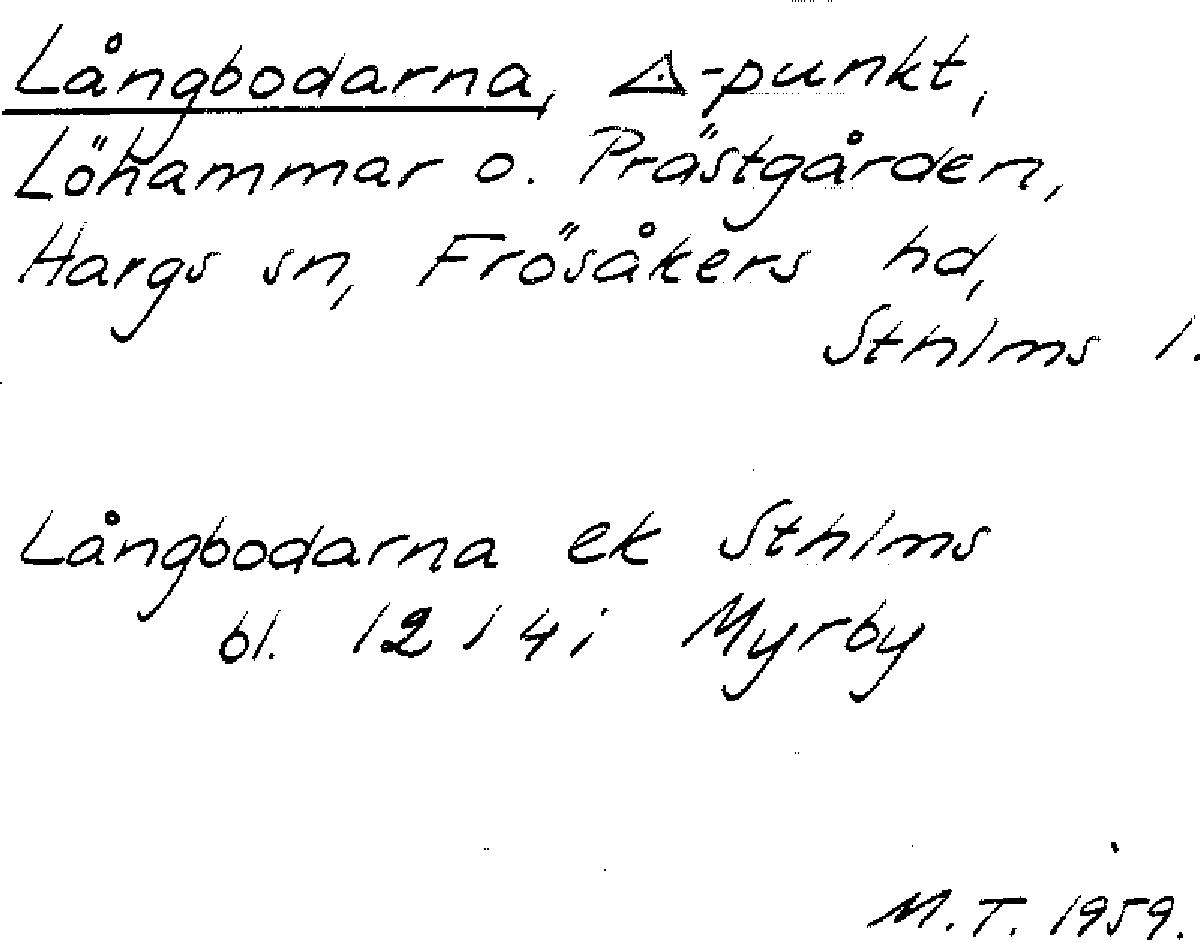 Långbodarna, △-punkt,
Löhammar o. Prästgården,
Hargs sn, Frösåkers hd,
Sthlms l.
Långbodarna ek Sthlms
bl. 12 I 4i Myrby
M.T. 1959.